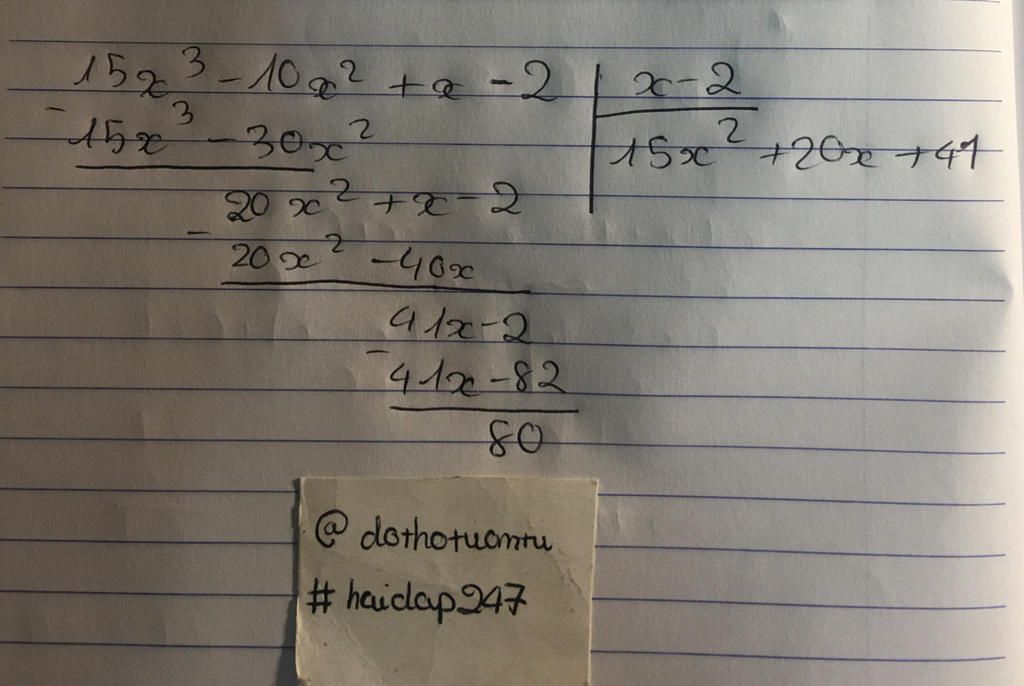 15x³ - 10x² + x - 2 | x - 2
- 15x³ - 30x² | 15x² + 20x + 41
20x² + x - 2
- 20x² - 40x
41x - 2
- 41x - 82
80
@dothotuomtu
#haidap247